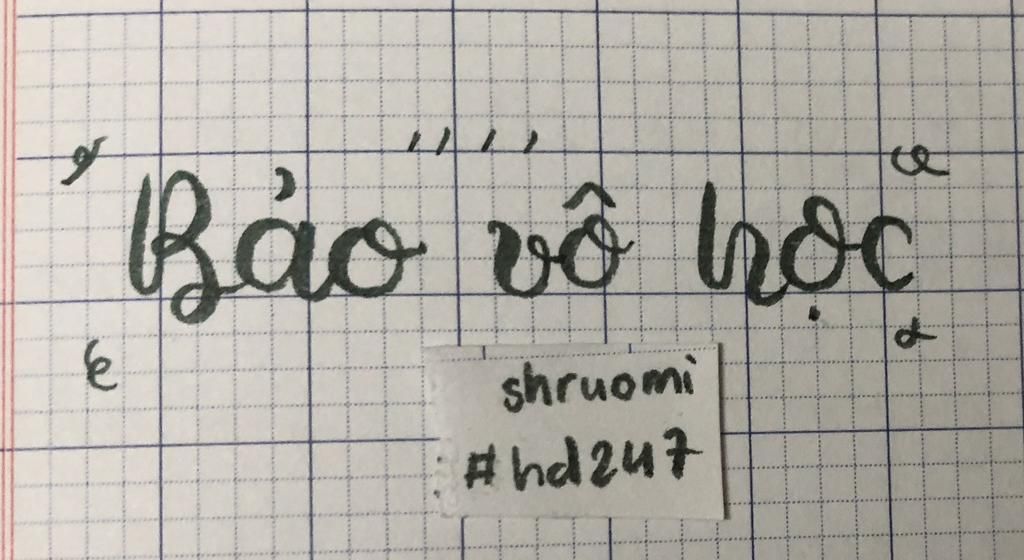 Bảo vô học
shruomi
#hd247